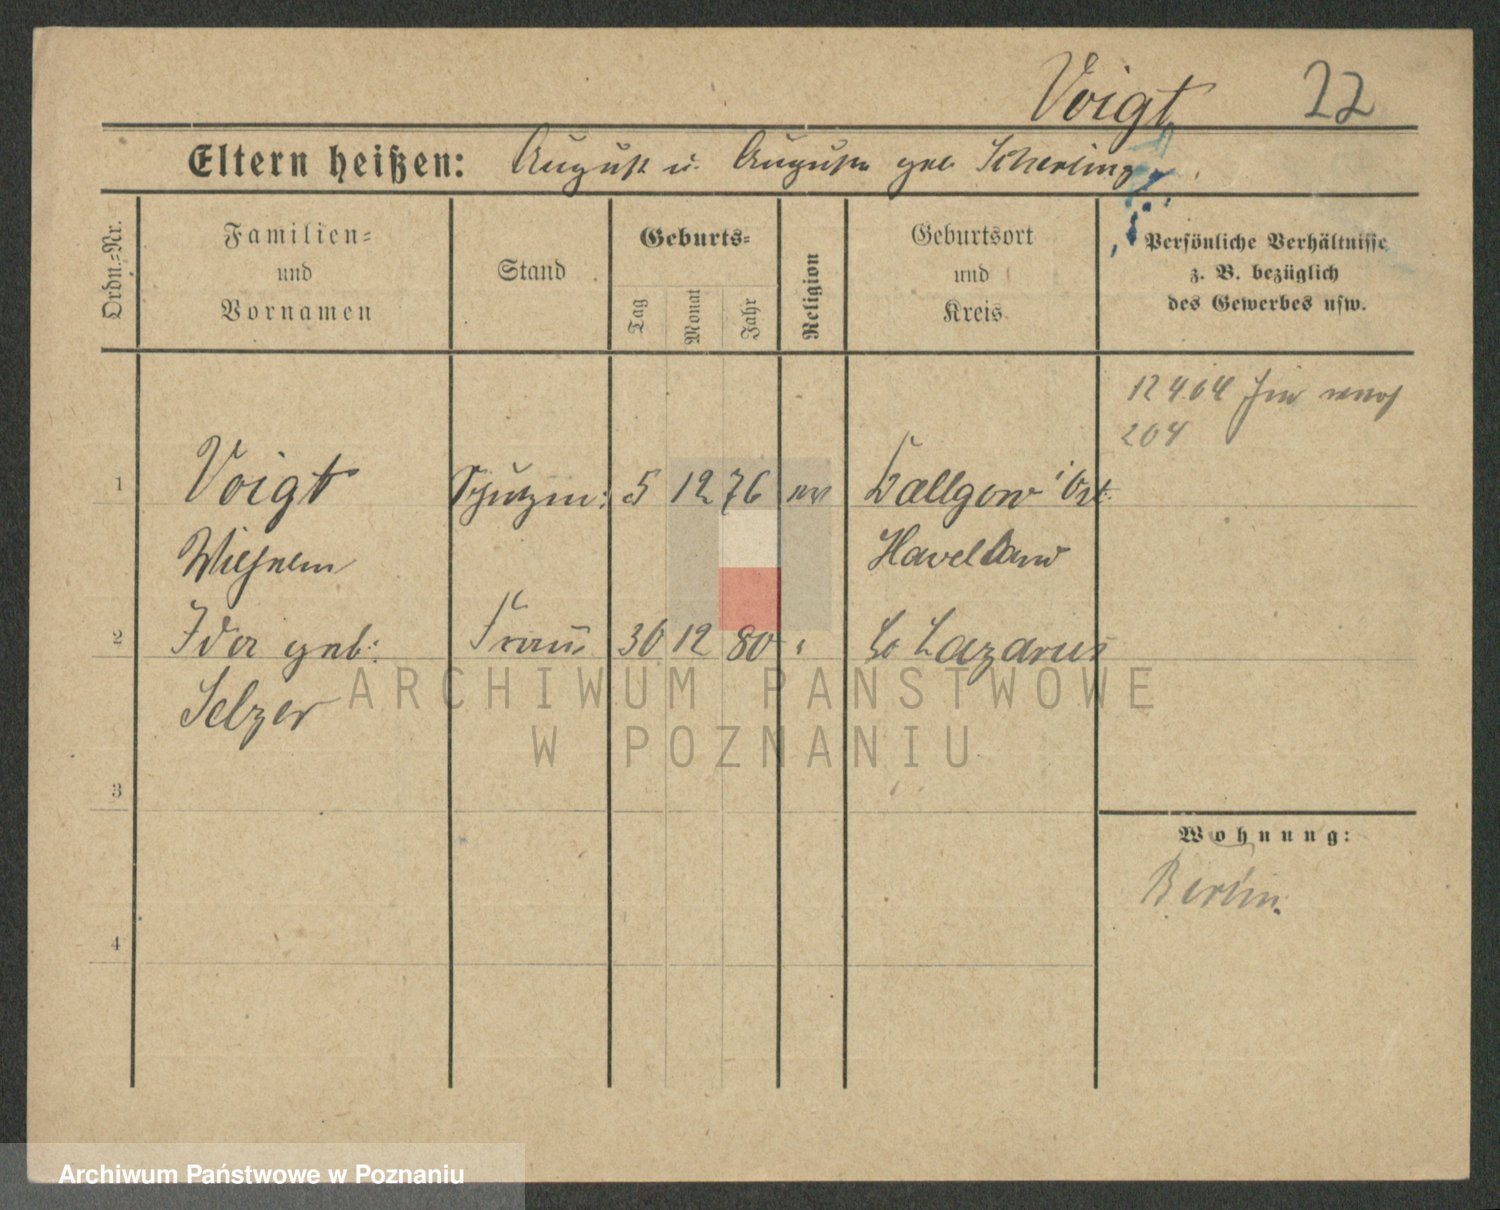 Voigt 22
Eltern heißen: August u. Auguste geb Scherling
Ordn.-Nr.
Familien-
und
Vornamen
Stand
Geburts-
Tag
Monat
Jahr
Religion
Geburtsort
und
Kreis
Persönliche Verhältnisse
z. B. bezüglich
des Gewerbes usw.
12 4 04
204
1 Voigt Schutzm: 5 12 76 ev Dallgow Ost
Wilhelm Havelland
2 Ida geb: Frau 30 12 80 " St Lazarus
Selzer
3
4
Wohnung:
Berlin.
ARCHIWUM PAŃSTWOWE
W POZNANIU
Archiwum Państwowe w Poznaniu